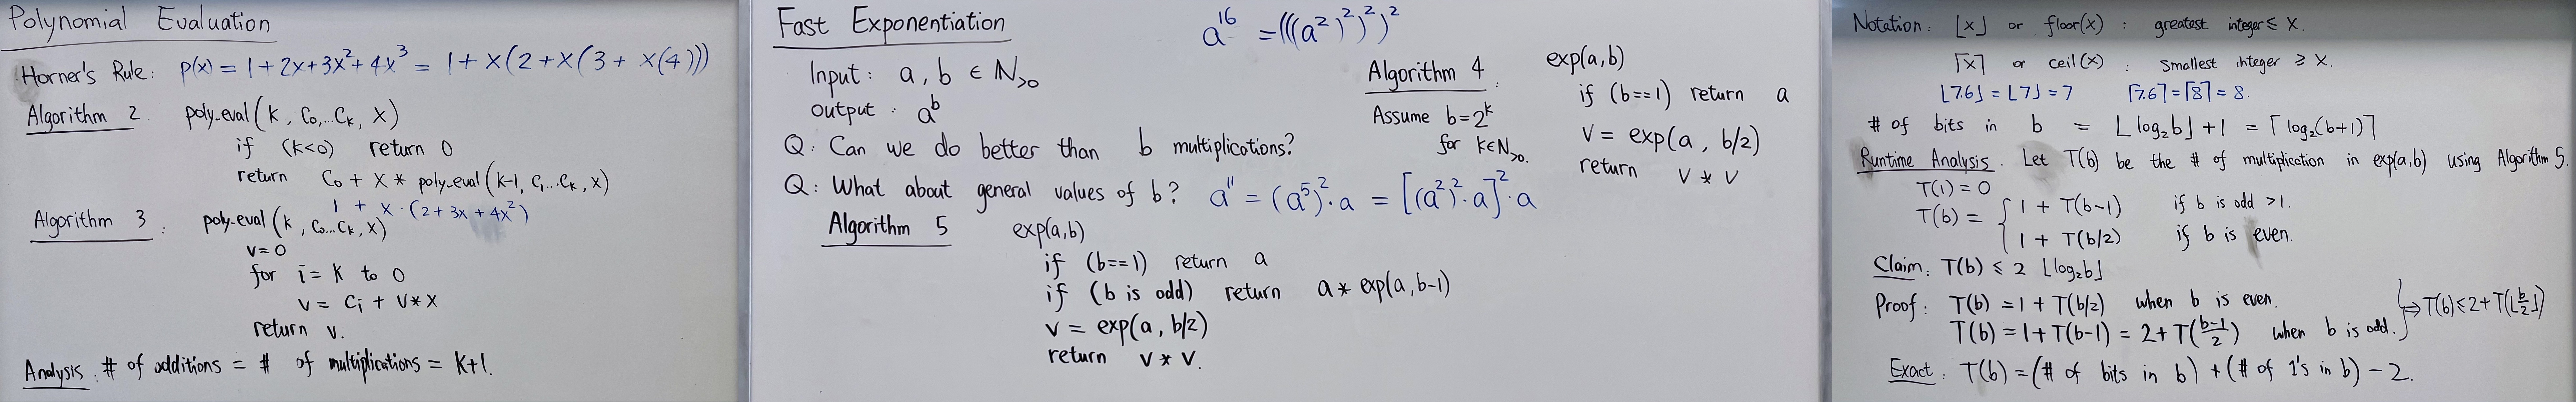 Polynomial Evaluation
Horner's Rule: p(x) = 1 + 2x + 3x² + 4x³ = 1 + x(2 + x(3 + x(4)))
Algorithm 2. poly_eval(k, C₀,...Cₖ, x)
if (k<0) return 0
return C₀ + x * poly_eval(k-1, C₁...Cₖ, x)
1 + x · (2 + 3x + 4x²)
Algorithm 3: poly_eval(k, C₀...Cₖ, x)
v = 0
for i = k to 0
v = Cᵢ + v * x
return v.
Analysis: # of additions = # of multiplications = k+1.
Fast Exponentiation
a¹⁶ = (((a²)²)²)²
Input: a, b ∈ ℕ>0
output: aᵇ
Q: Can we do better than b multiplications?
Algorithm 4:
Assume b = 2ᵏ
for k∈ℕ>0.
exp(a,b)
if (b==1) return a
v = exp(a, b/2)
return v * v
Q: What about general values of b? a¹¹ = (a⁵)²·a = [(a²)²·a]²·a
Algorithm 5 exp(a,b)
if (b==1) return a
if (b is odd) return a * exp(a, b-1)
v = exp(a, b/2)
return v * v.
Notation: ⌊x⌋ or floor(x): greatest integer ≤ x.
⌈x⌉ or ceil(x): smallest integer ≥ x.
⌊7.6⌋ = ⌊7⌋ = 7 ⌈7.6⌉ = ⌈8⌉ = 8.
# of bits in b = ⌊log₂b⌋ + 1 = ⌈log₂(b+1)⌉
Runtime Analysis. Let T(b) be the # of multiplication in exp(a,b) using Algorithm 5.
T(1) = 0
T(b) = { 1 + T(b-1) if b is odd >1.
1 + T(b/2) if b is even.
Claim: T(b) ≤ 2 ⌊log₂b⌋
Proof: T(b) = 1 + T(b/2) when b is even.
T(b) = 1 + T(b-1) = 2 + T((b-1)/2) when b is odd.
⇒ T(b) ≤ 2 + T(⌊b/2⌋)
Exact: T(b) = (# of bits in b) + (# of 1's in b) - 2.